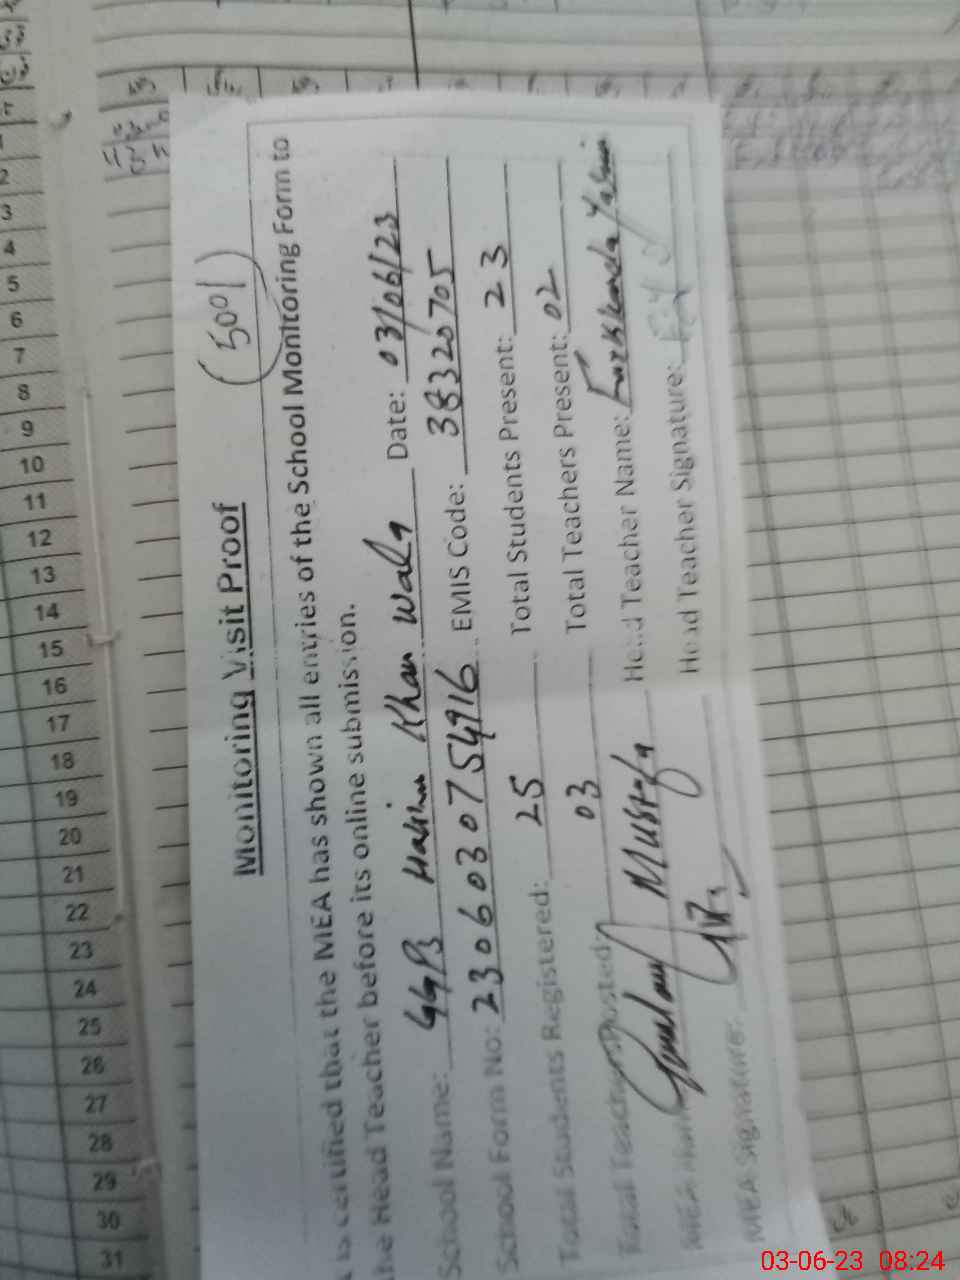 (5001)
Monitoring Visit Proof
is certified that the MEA has shown all entries of the School Monitoring Form to
the Head Teacher before its online submission.
School Name: GGPS Hakim Khan Wala Date: 03/06/23
School Form No: 2306030754916 EMIS Code: 38320705
Total Students Registered: 25 Total Students Present: 23
Total Teachers Posted: 03 Total Teachers Present: 02
MEA Name Ghulam Mustafa Head Teacher Name: Farkhanda Yasmin
MEA Signature: Head Teacher Signature:
1
2
3
4
5
6
7
8
9
10
11
12
13
14
15
16
17
18
19
20
21
22
23
24
25
26
27
28
29
30
31
03-06-23 08:24